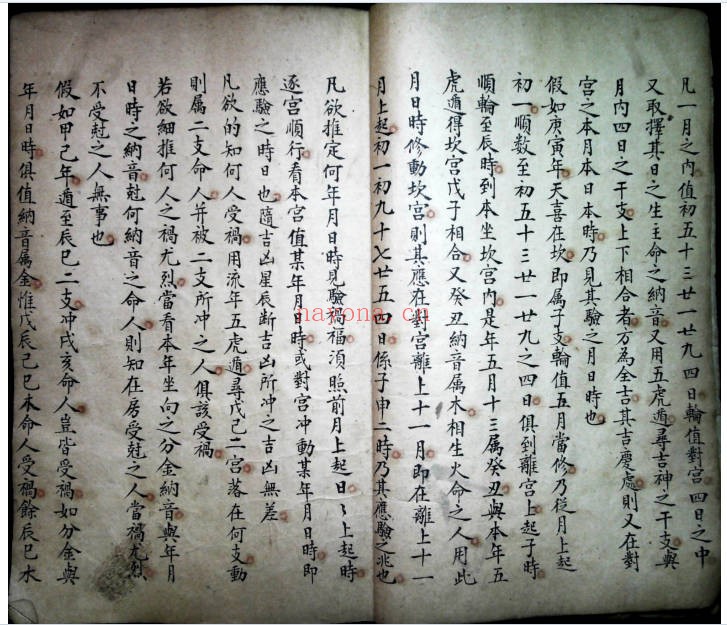 凡一月之內值初五十三廿一廿九四日輪值對宮四日之中
又取擇其日之生主命之納音又用五虎遁尋吉神之干支與
月內四日之干支上下相合者方為全吉其吉慶處則又在對
宮之本月本日本時乃見其驗之月日時也
假如庚寅年天喜在坎即属子支輪值五月當修乃從月上起
初一順數至初五十三廿一廿九之四日俱到離宮上起子時
順輪至辰時到本坐坎宮內是年五月十三属癸丑與本年五
虎遁得坎宮戊子相合又癸丑納音属木相生火命之人用此
月日時修動坎宮則其應在對宮離上十一月即在離上十一
月上起初一初九十七廿五四日係子申二時乃其應驗之兆也
凡欲推定何年月日時見驗禍福須照前月上起日〻上起時
逐宮順行看本宮值某年月日時或對宮冲動某年月日時即
應驗之時日也隨吉凶星辰断吉凶所冲之吉凶無差
凡欲的知何人受禍用流年五虎遁尋戊己二宮落在何支動
則属二支命人并被二支所冲之人俱該受禍
若欲細推何人之禍尤烈當看本年坐向之分金納音與年月
日時之納音尅何納音之命人則知在房受尅之人當禍尤烈
不受尅之人無事也
假如甲己年遁至辰巳二支冲戌亥命人豈皆受禍如分金與
年月日時俱值納音属金惟戊辰己巳木命人受禍餘辰巳木
nayona.cn